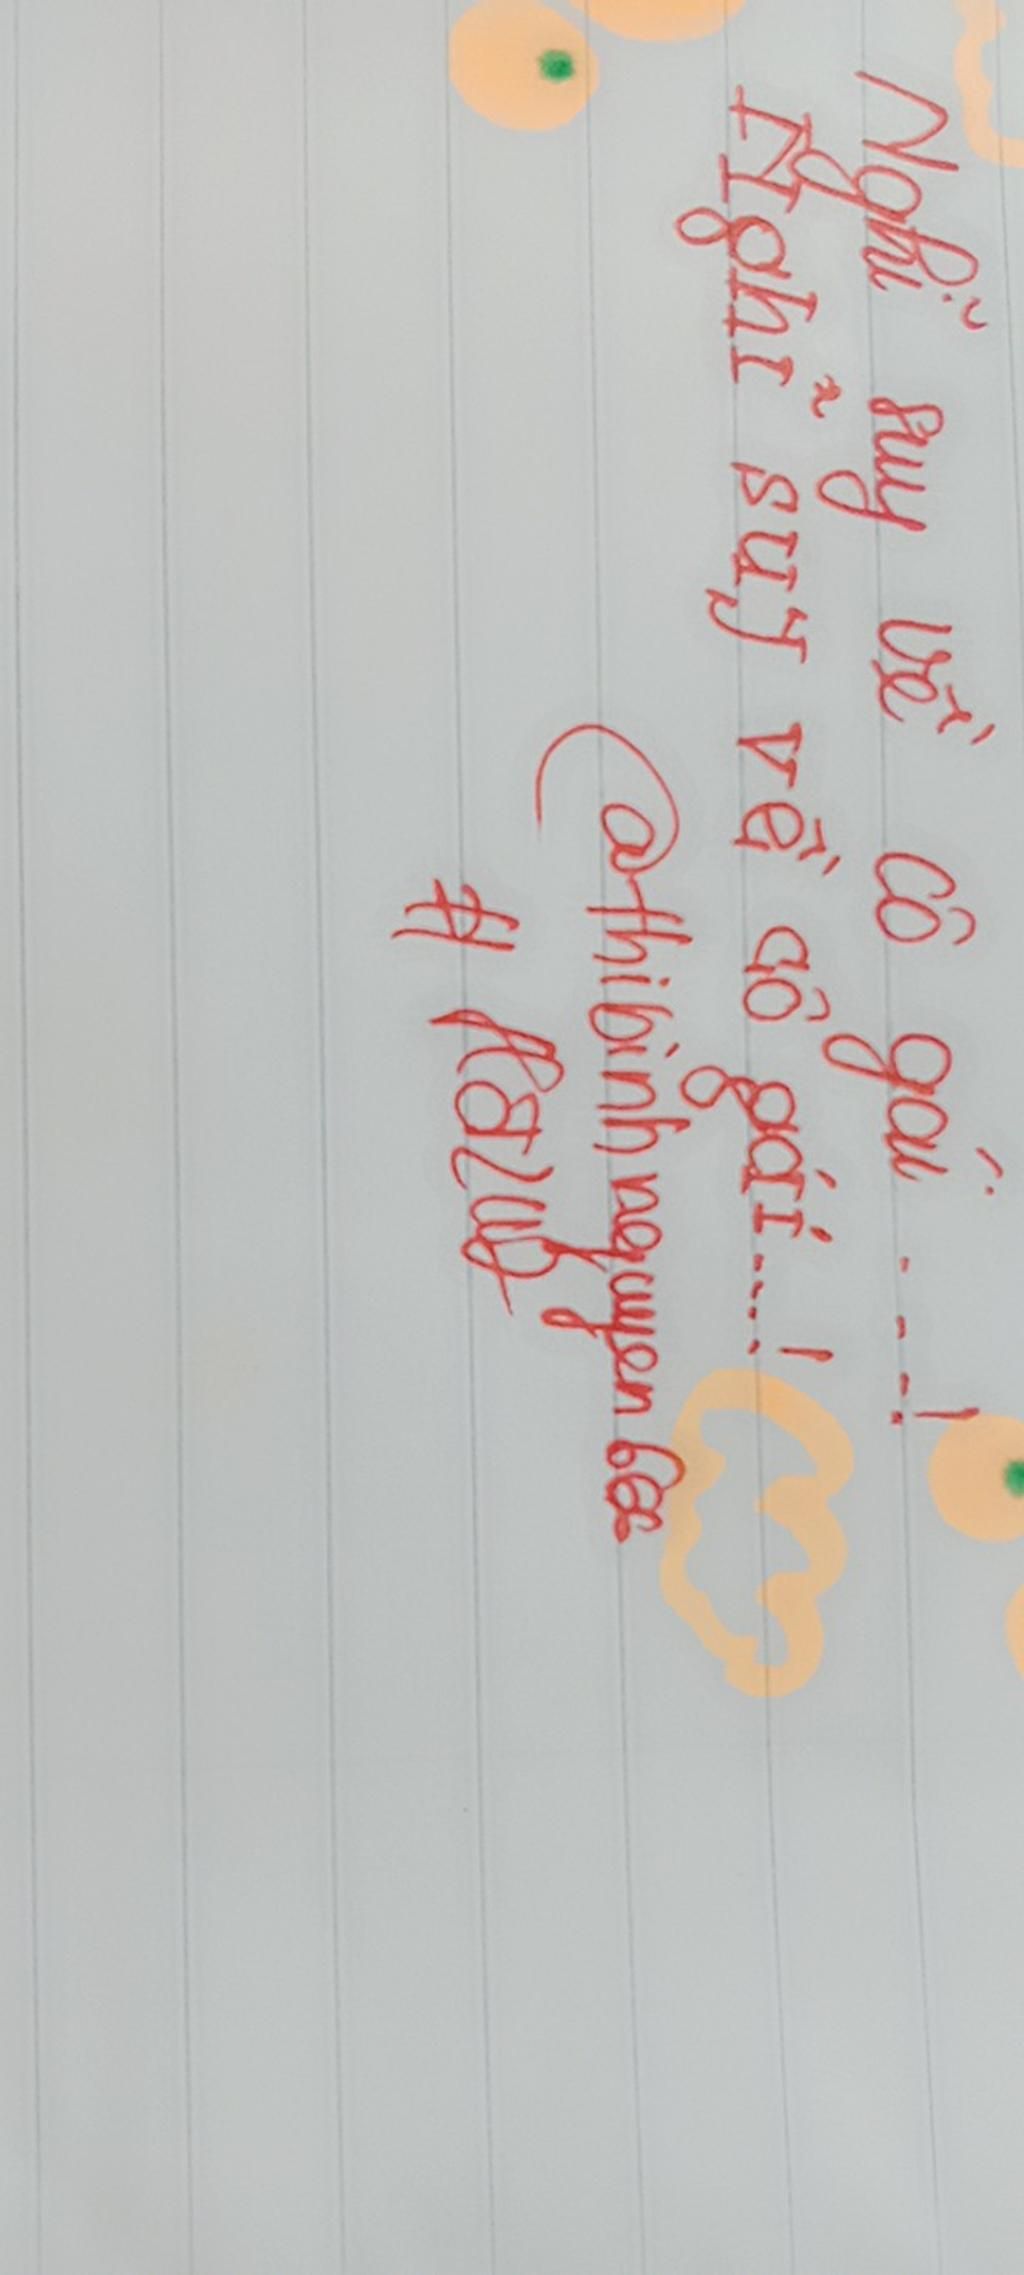 Nghĩ suy về cô gái ...!
Nghĩ suy về cô gái...!
@thibinhnguyen663
#